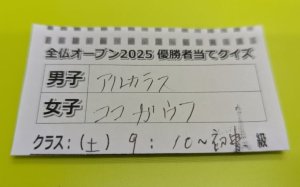 全仏オープン2025 優勝者当てクイズ
男子 アルカラス
女子 ココガウフ
クラス：(土) 9：10〜初中級